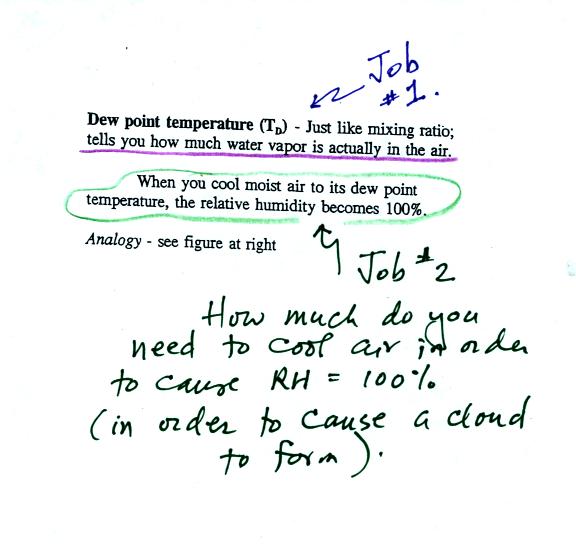 Job
#1.
Dew point temperature (T_D) - Just like mixing ratio;
tells you how much water vapor is actually in the air.
When you cool moist air to its dew point
temperature, the relative humidity becomes 100%.
Analogy - see figure at right
Job #2
How much do you
need to cool air in order
to cause RH = 100%
(in order to cause a cloud
to form).